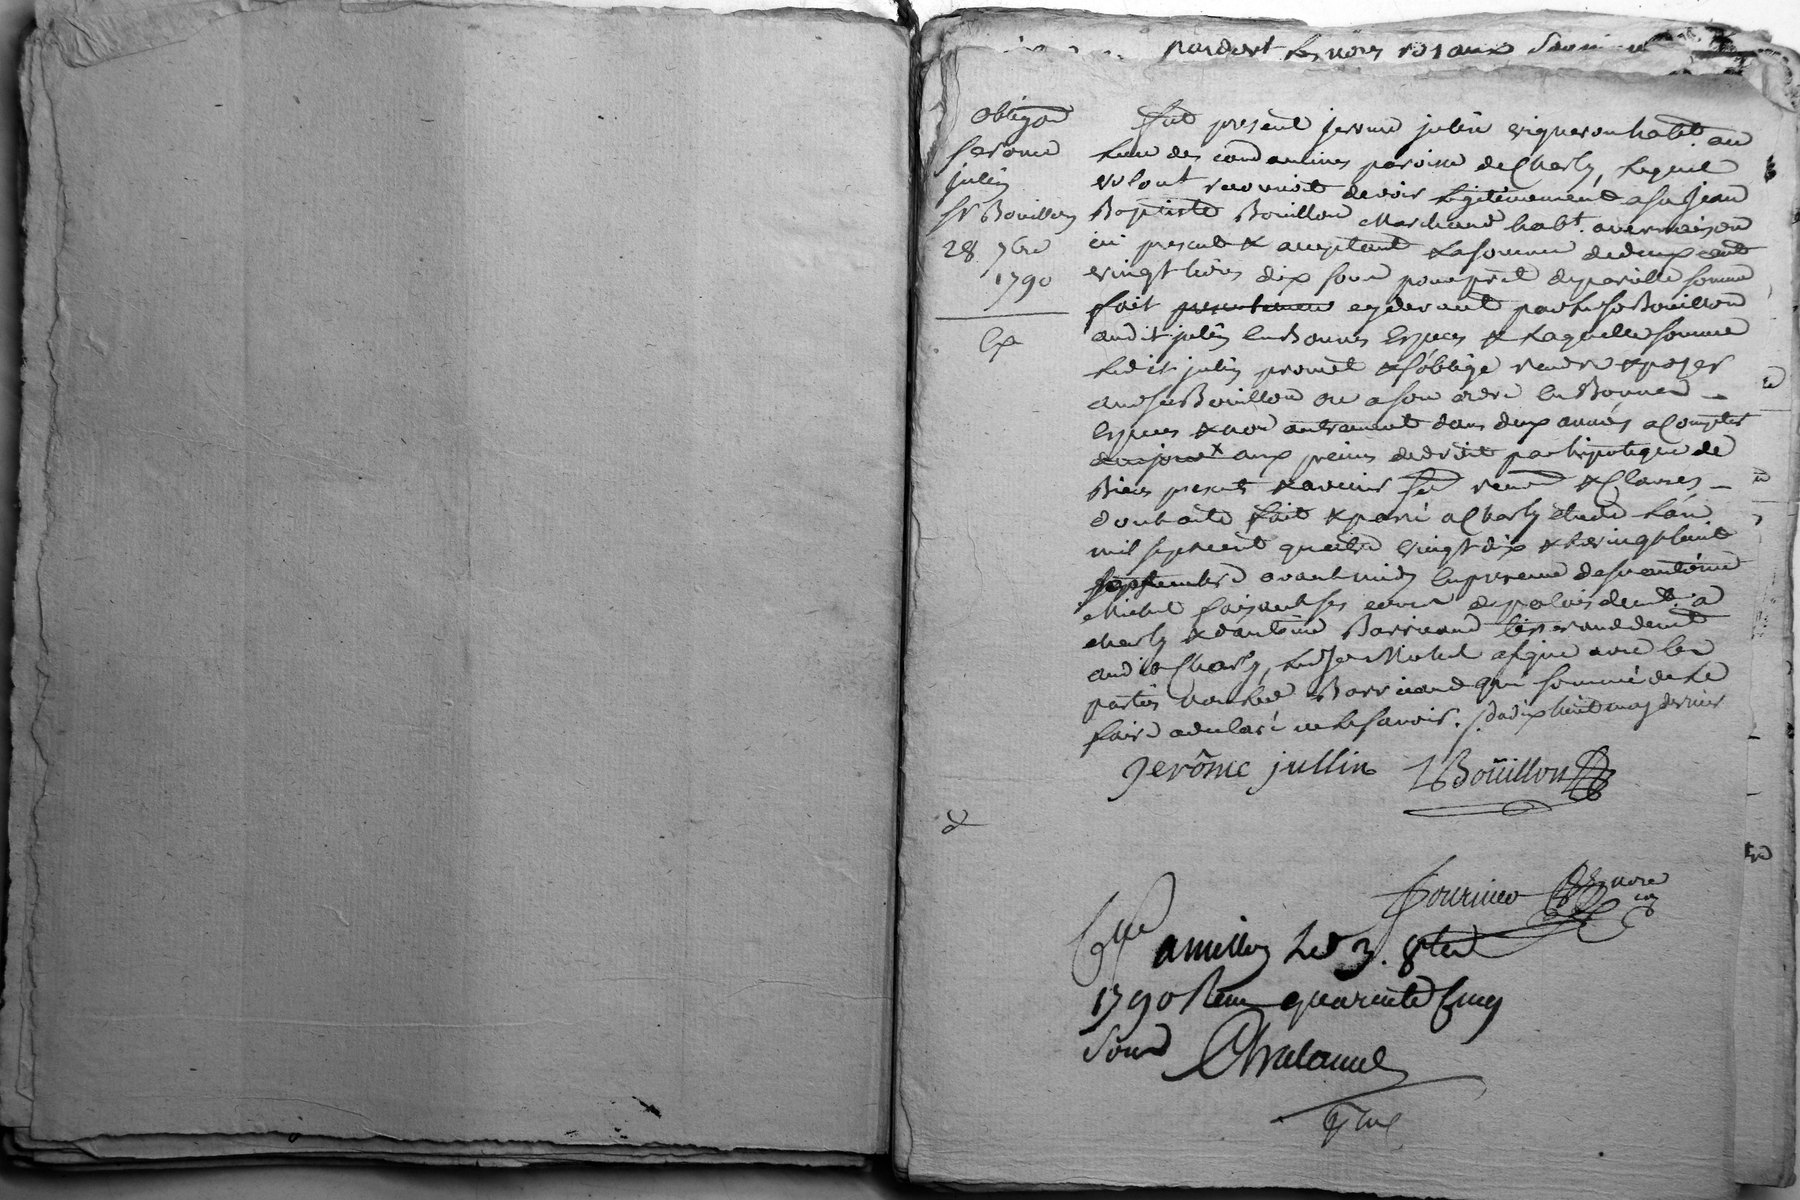 pardevt les nores royaux
obligaon
Jerome
julin
Sr Bouillon
28 7bre
1790
Ex
fut present Jerome julin vigneron habt. au
lieu des condamines paroisse de Charly, lequel
de gré volont reconnoit devoir legitimement a sr Jean
Baptiste Bouillon Marchand habt. a vernaison
ici present & acceptant la somme de deux cent
vingt livres dix sous pour prêt de pareille somme
fait cydevant par led sr Bouillon
audit julin en Bonnes Especes & laquelle somme
ledit julin promet & s'oblige rendre & payer
aud sr Bouillon ou a son ordre en Bonnes
Especes & non autrement dans deux années a Compter
du jour x aux peines de droit par hipoteque de
Biens presents & avenir fut renond & Clauses
dont acte fait & passé a Charly étude l'an
mil sept cent quatre vingt dix & le vingt huit
septembre avant midy En presence de sr antoine
Michel faisant ses cours de palais demt. a
charly & d'antoine Barricand tisserand demt
audit Charly, led sr Michel a signé avec les
parties non led Barricand qui sommé de le
faire a declaré ne le savoir. x du dix huit may dernier
Jerôme jullin JB Boüillon
fournier nore
Clle a millery le 3. 8bre
1790 Reçu quarente Cinq
Sous